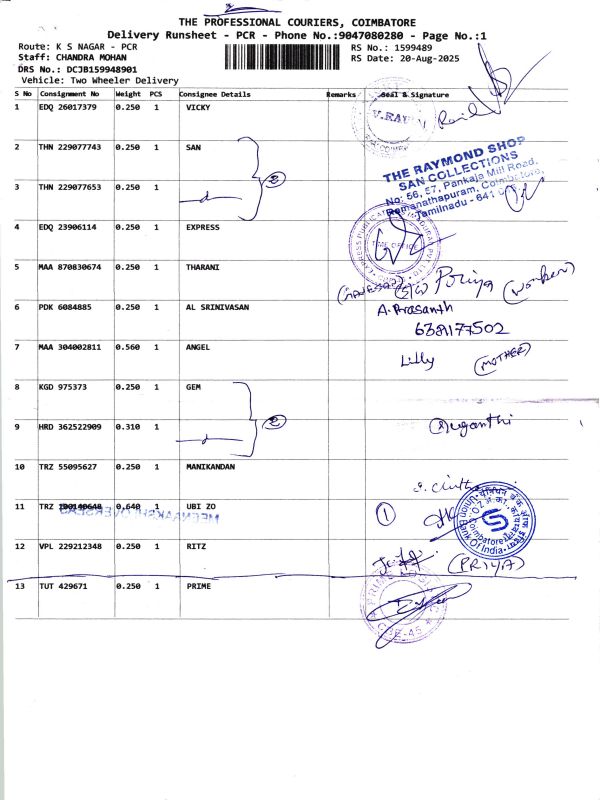 THE PROFESSIONAL COURIERS, COIMBATORE
Delivery Runsheet - PCR - Phone No.:9047080280 - Page No.:1
Route: K S NAGAR - PCR RS No.: 1599489
Staff: CHANDRA MOHAN RS Date: 20-Aug-2025
DRS No.: DCJB159948901
Vehicle: Two Wheeler Delivery
S No Consignment No Weight PCS Consignee Details Remarks Seal & Signature
1 EDQ 26017379 0.250 1 VICKY
2 THN 229077743 0.250 1 SAN
THE RAYMOND SHOP
SAN COLLECTIONS
No: 56, 57, Pankaja Mill Road,
Ramanathapuram, Coimbatore,
Tamilnadu - 641
3 THN 229077653 0.250 1 2
4 EDQ 23906114 0.250 1 EXPRESS
TIME OFFICE
5 MAA 870830674 0.250 1 THARANI
Priya (worker)
6 PDK 6084885 0.250 1 AL SRINIVASAN A. Prasanth
6381177502
7 MAA 304002811 0.560 1 ANGEL Lilly (MOTHER)
8 KGD 975373 0.250 1 GEM
2
9 HRD 362522909 0.310 1 Suganthi
10 TRZ 55095627 0.250 1 MANIKANDAN
11 TRZ 0.640 1 UBI ZO 1
MEENAAKSHI OVERSEAS
Union Bank Of India
Coimbatore
12 VPL 229212348 0.250 1 RITZ (PRIYA)
13 TUT 429671 0.250 1 PRIME
CBE-45